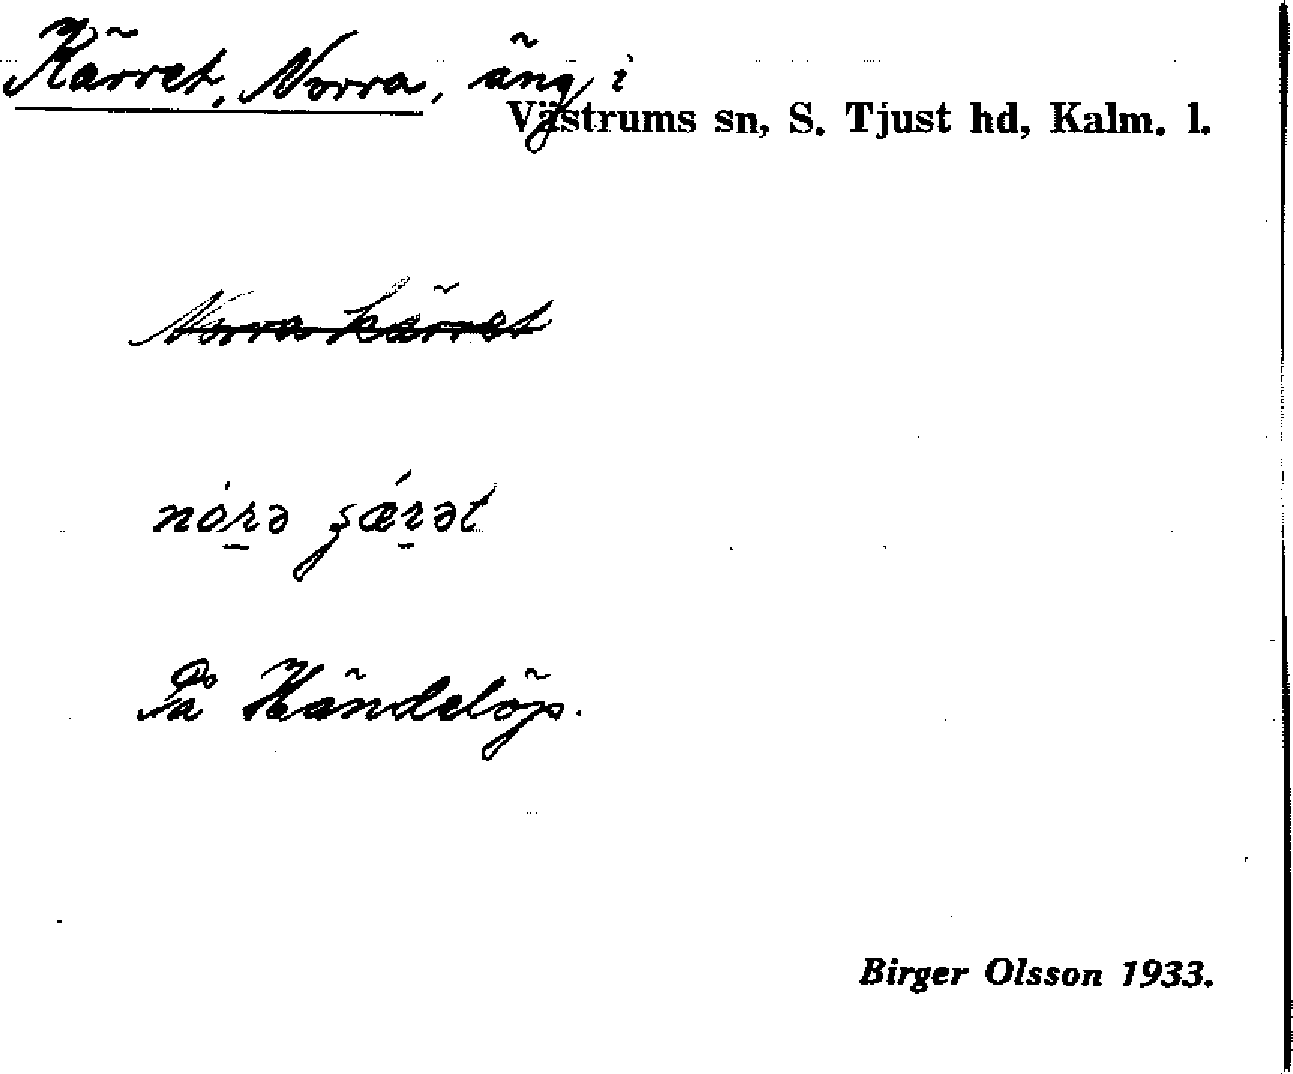 Kärret, Norra, äng i
Västrums sn, S. Tjust hd, Kalm. l.
Norra kärret
På Händelöp.
Birger Olsson 1933.